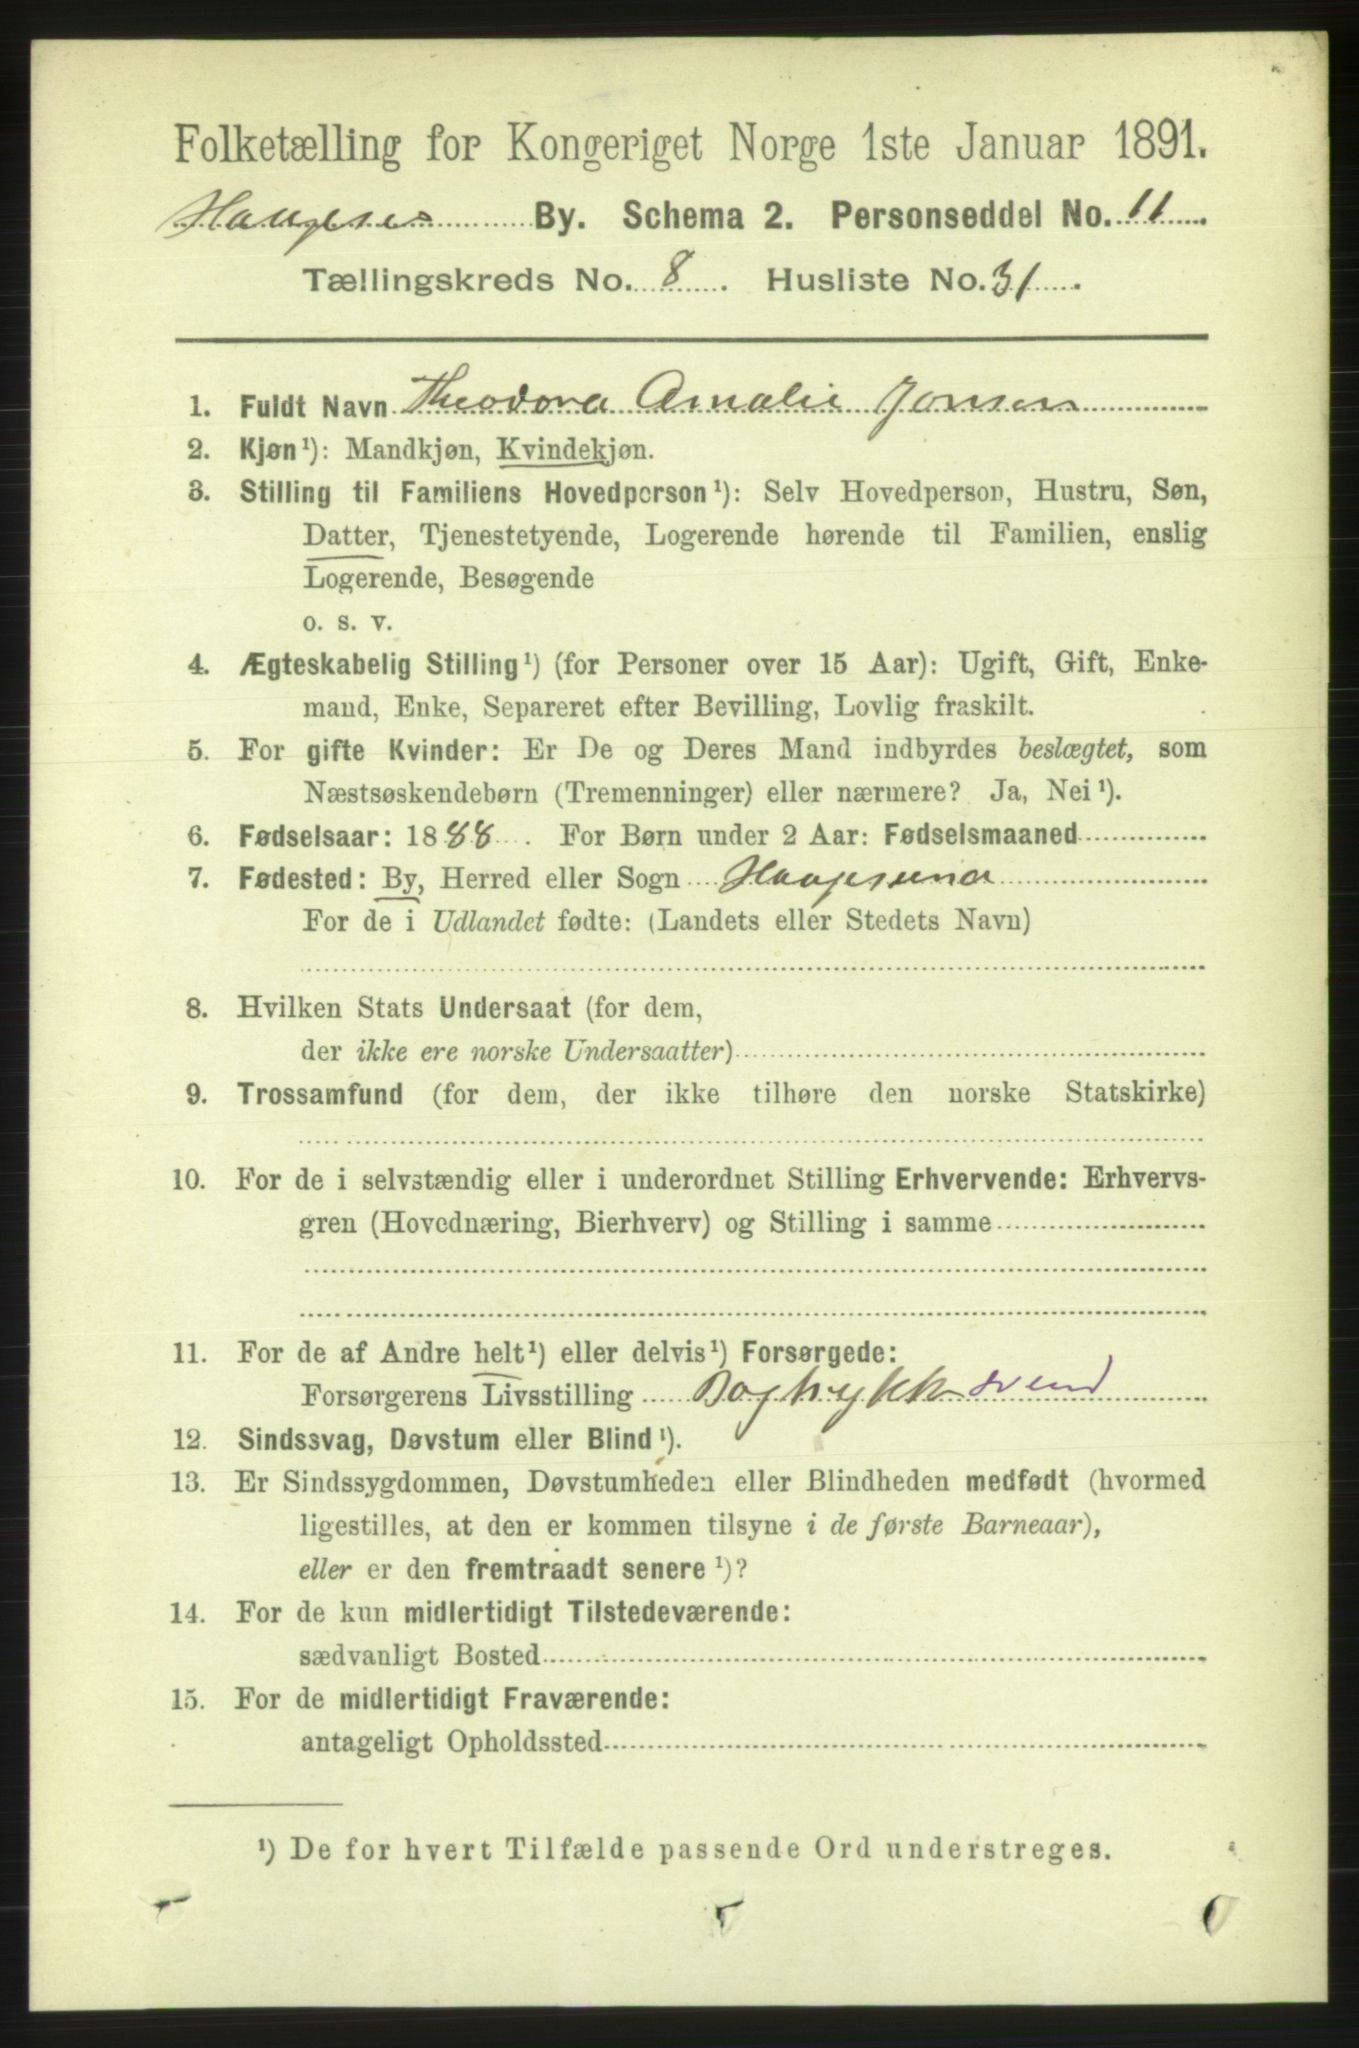 Folketælling for Kongeriget Norge 1ste Januar 1891.
By. Schema 2. Personseddel No. 11
Tællingskreds No. 8. Husliste No. 31.
1. Fuldt Navn Theodora Amalie Jonsen
2. Kjøn¹): Mandkjøn, Kvindekjøn.
3. Stilling til Familiens Hovedperson¹): Selv Hovedperson, Hustru, Søn,
Datter, Tjenestetyende, Logerende hørende til Familien, enslig
Logerende, Besøgende
o. s. v.
4. Ægteskabelig Stilling¹) (for Personer over 15 Aar): Ugift, Gift, Enke-
mand, Enke, Separeret efter Bevilling, Lovlig fraskilt.
5. For gifte Kvinder: Er De og Deres Mand indbyrdes beslægtet, som
Næstsøskendebørn (Tremenninger) eller nærmere? Ja, Nei¹).
6. Fødselsaar: 1888. For Børn under 2 Aar: Fødselsmaaned
7. Fødested: By, Herred eller Sogn Haugesund
For de i Udlandet fødte: (Landets eller Stedets Navn)
8. Hvilken Stats Undersaat (for dem,
der ikke ere norske Undersaatter)
9. Trossamfund (for dem, der ikke tilhøre den norske Statskirke)
10. For de i selvstændig eller i underordnet Stilling Erhvervende: Erhvervs-
gren (Hovednæring, Bierhverv) og Stilling i samme
11. For de af Andre helt¹) eller delvis¹) Forsørgede:
Forsørgerens Livsstilling Bogtrykk svend
12. Sindssvag, Døvstum eller Blind¹).
13. Er Sindssygdommen, Døvstumheden eller Blindheden medfødt (hvormed
ligestilles, at den er kommen tilsyne i de første Barneaar),
eller er den fremtraadt senere¹)?
14. For de kun midlertidigt Tilstedeværende:
sædvanligt Bosted
15. For de midlertidigt Fraværende:
antageligt Opholdssted
¹) De for hvert Tilfælde passende Ord understreges.